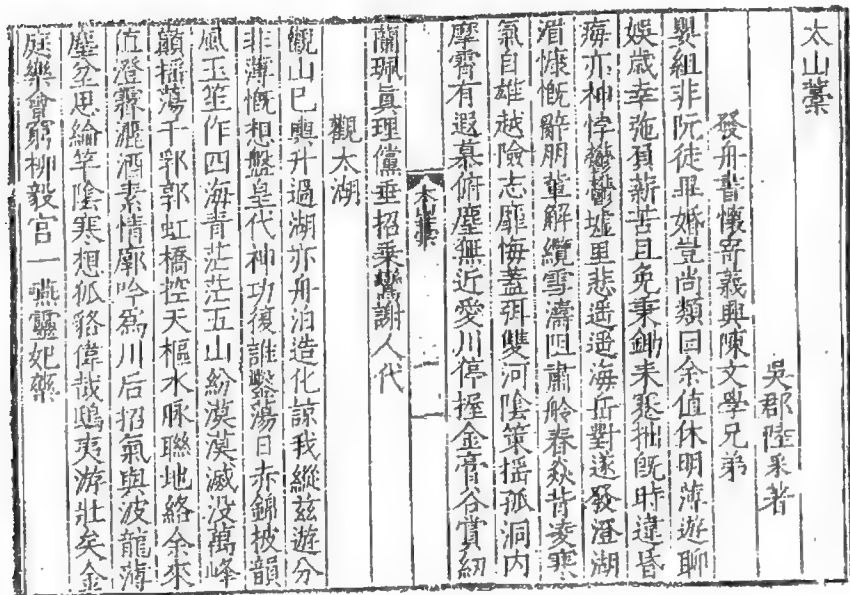 太山藁
吳郡陸采著
發舟書懷寄義興陳文學兄弟
組非阮徒畢婚豈尚類曰余值休明薄遊聊
娛歲幸弛負薪苦且免秉鋤耒蹇拙旣時違昏
痗亦神悖鬱鬱墟里悲遥遥海岳對遂發澄湖
湄慷慨辭朋輩解纜雪濤阻肅舲春焱背凌寒
氣自雄越險志靡悔蓋弭雙河陰策摇孤洞内
摩霄有遐慕俯塵無近愛川停握金膏谷賞紉
太山藁
一
蘭珮眞理儻垂招乗鸞謝人代
觀太湖
觀山已輿升過湖亦舟泊造化諒我縱茲遊分
非薄慨想盤皇代神功復誰鑿蕩日赤錦披韻
風玉笙作四海青茫茫五山紛漠漠滅没萬峰
巔摇蕩千郛郭虹橋控天樞水脉聯地絡余來
值澄霽灑酒素情廓吟爲川后招氣與波龍薄
塵坌思綸竿陰寒想狐貉偉哉鴟夷游壯矣金
庭樂會窮柳毅宫一燕靈妃藥